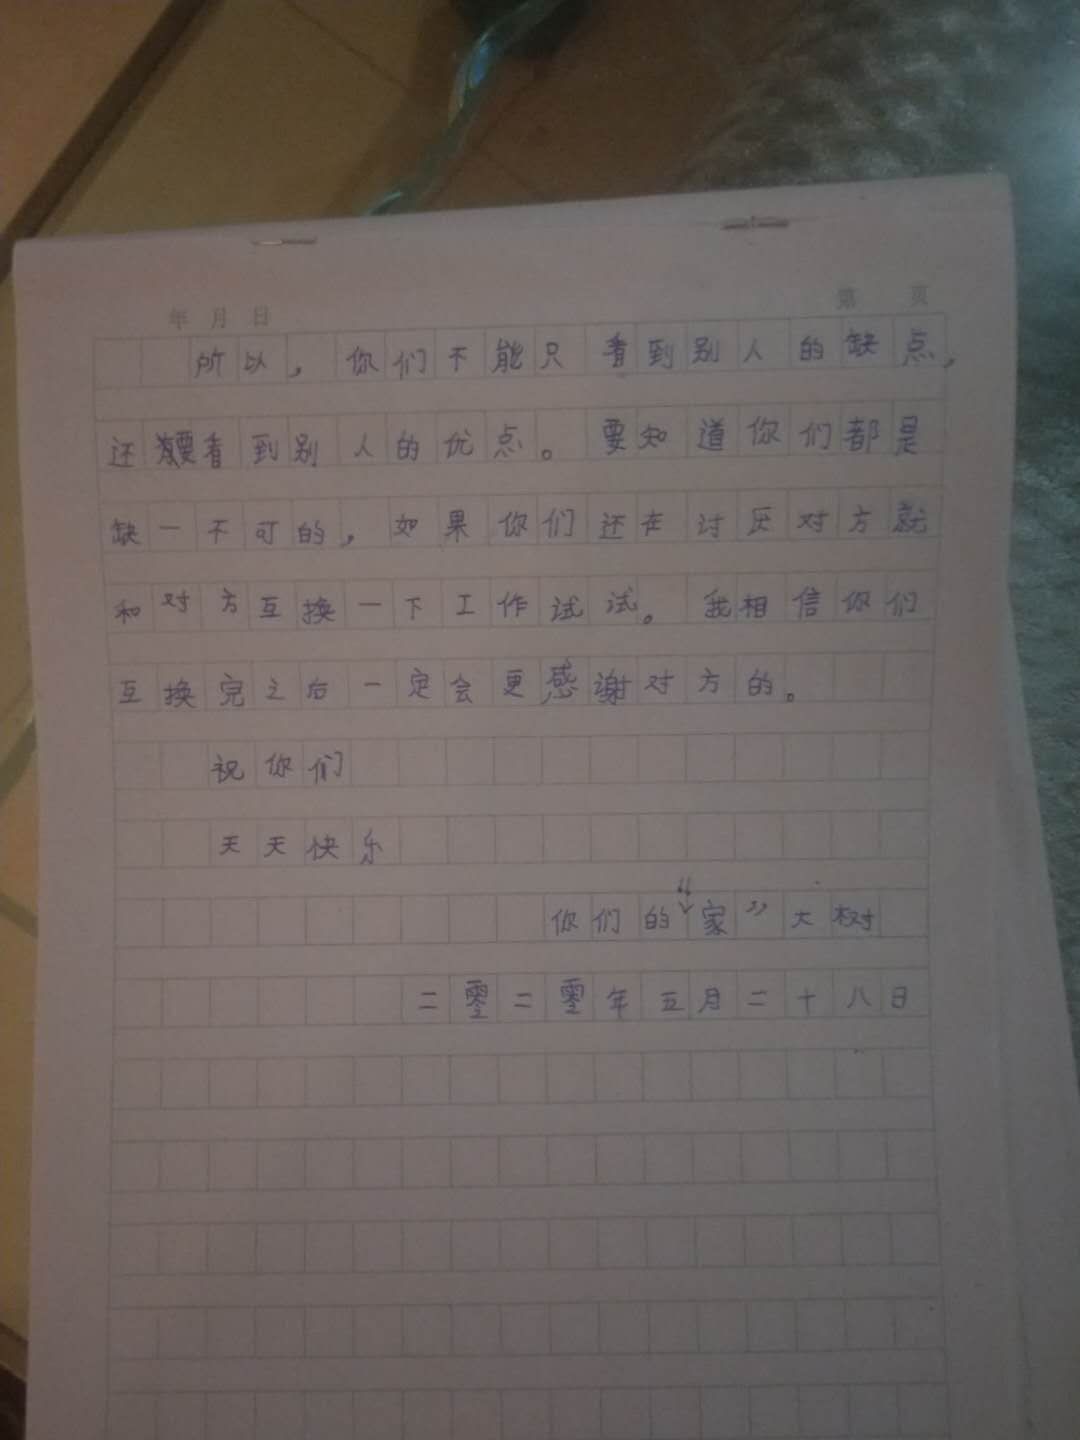 年 月 日
第 页
所以，你们不能只看到别人的缺点，
还要看到别人的优点。要知道你们都是
缺一不可的，如果你们还在讨厌对方就
和对方互换一下工作试试。我相信你们
互换完之后一定会更感谢对方的。
祝你们
天天快乐
你们的“家”大树
二零二零年五月二十八日